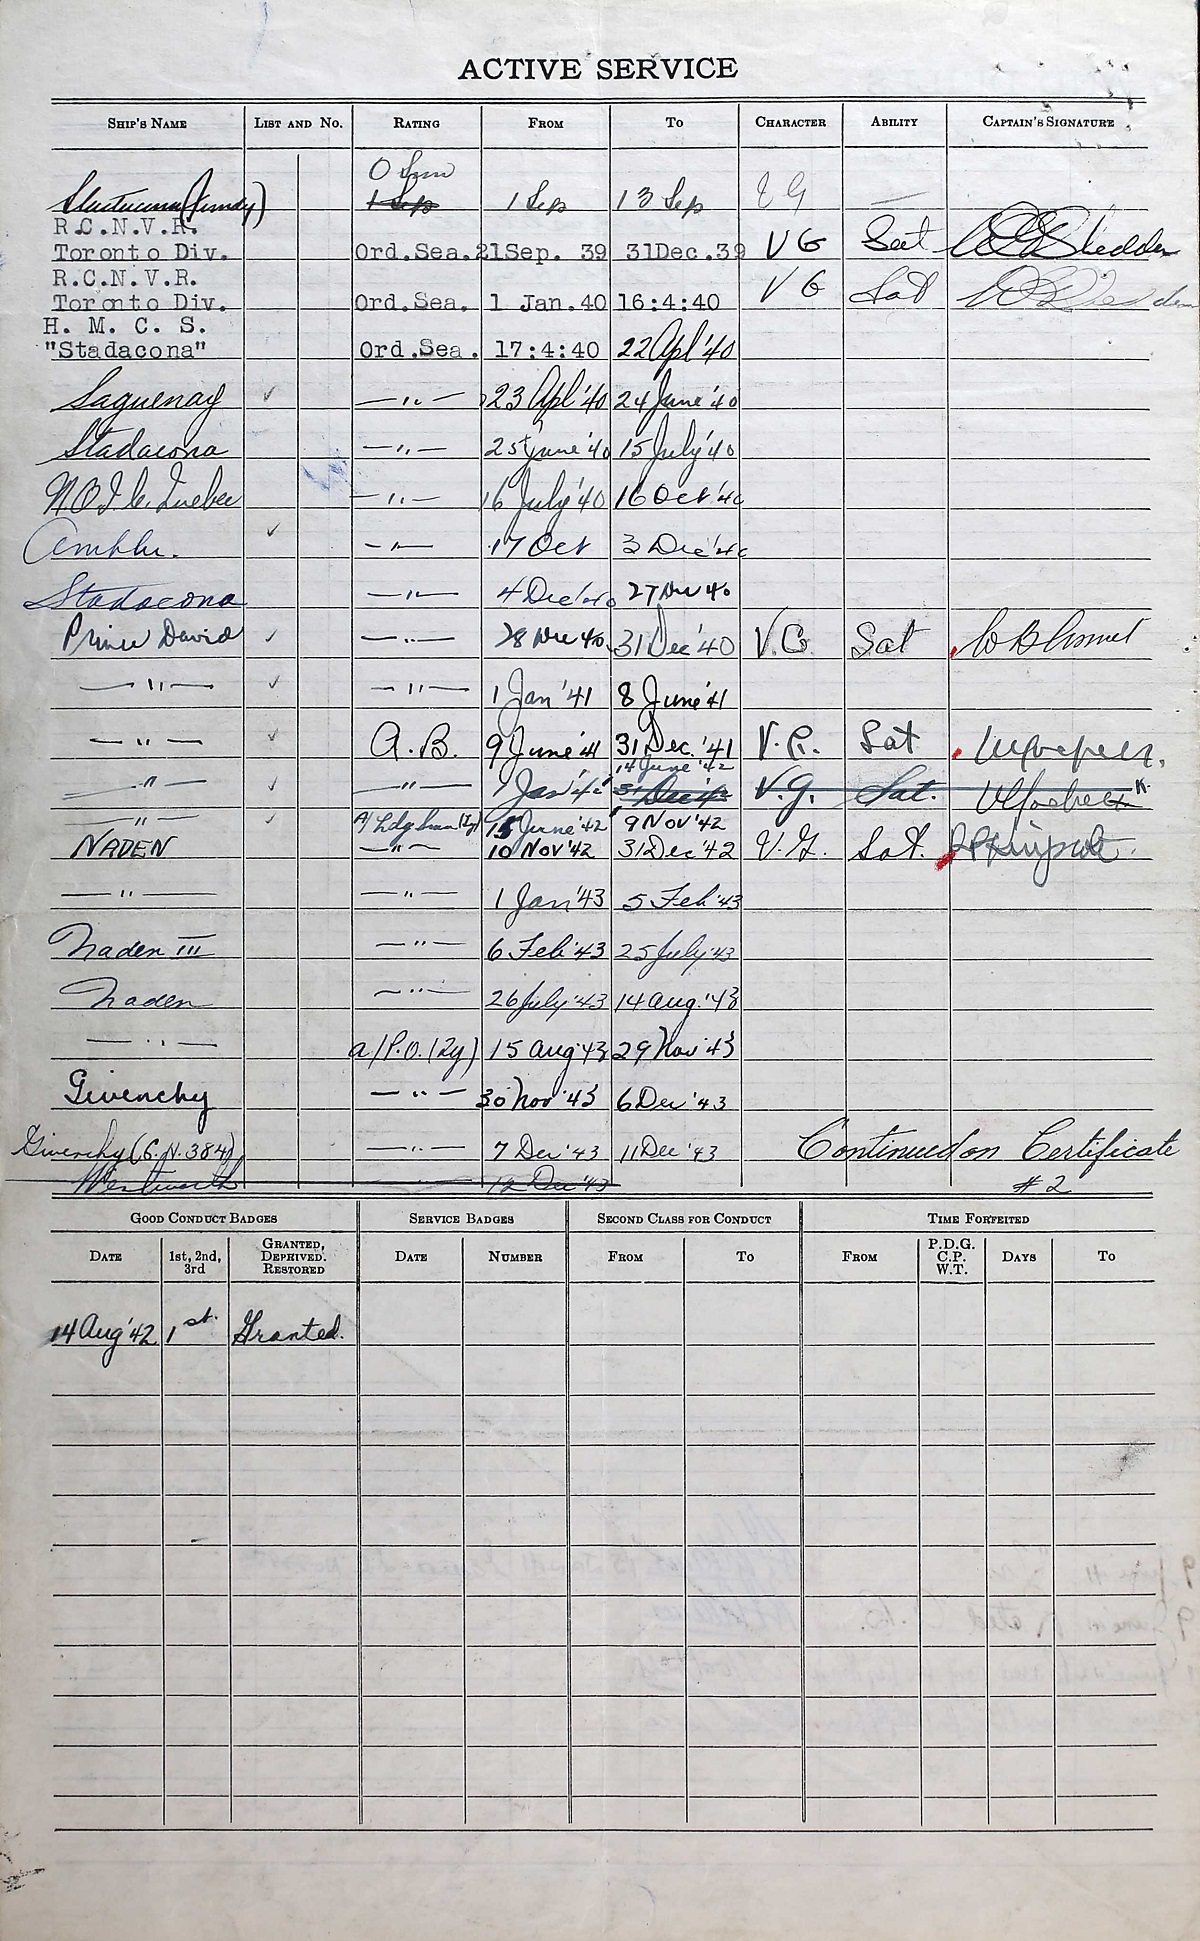 ACTIVE SERVICE
SHIP'S NAME LIST AND NO. RATING FROM TO CHARACTER ABILITY CAPTAIN'S SIGNATURE
O Smn
1 Sep 1 Sep 13 Sep VG —
R.C.N.V.R.
Toronto Div. Ord.Sea. 21Sep. 39 31Dec.39 VG Sat
R.C.N.V.R.
Toronto Div. Ord.Sea. 1 Jan.40 16:4:40 VG Sat
H. M. C. S.
"Stadacona" Ord.Sea. 17:4:40 22 Apl '40
Saguenay ✓ —"— 23 Apl '40 24 June '40
Stadacona —"— 25 June '40 15 July '40
N.O.I.C. Quebec —"— 16 July '40 16 Oct '40
Ambler. ✓ —"— 17 Oct 3 Dec '40
Stadacona —"— 4 Dec '40 27 Dec 40
Prince David ✓ —"— 28 Dec 40 31 Dec '40 V.G. Sat
—"— ✓ —"— 1 Jan '41 8 June '41
—"— ✓ A.B. 9 June '41 31 Dec. '41 V.G. Sat
14 June '42
—"— ✓ —"— 1 Jan '42 31 Dec 42 V.G. Sat.
—"— ✓ 15 June '42 9 Nov '42
NADEN —"— 10 Nov '42 31 Dec '42 V.G. Sat.
—"— —"— 1 Jan '43 5 Feb '43
Naden III —"— 6 Feb '43 25 July '43
Naden —"— 26 July '43 14 Aug. '43
—"— a/P.O. (Ty) 15 Aug '43 29 Nov '43
Givenchy —"— 30 Nov '43 6 Dec '43
Givenchy (C.N. 384) —"— 7 Dec '43 11 Dec '43 Continued on Certificate
Wentworth 12 Dec '43 # 2
GOOD CONDUCT BADGES SERVICE BADGES SECOND CLASS FOR CONDUCT TIME FORFEITED
DATE 1st, 2nd, 3rd GRANTED, DEPRIVED. RESTORED DATE NUMBER FROM TO FROM P.D.G. C.P. W.T. DAYS TO
14 Aug '42 1st. Granted.